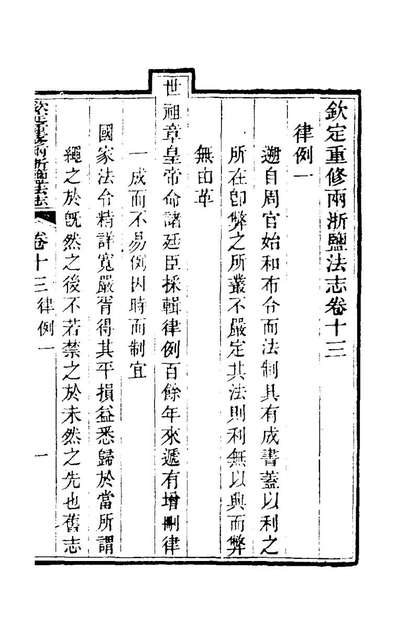 欽定重修兩浙鹽法志卷十三
律例一
遡自周官始和布令而法制具有成書蓋以利之
所在卽弊之所叢不嚴定其法則利無以興而弊
無由革
世祖章皇帝命諸廷臣採輯律例百餘年來遞有增刪律
一成而不易例因時而制宜
國家法令精詳寬嚴胥得其平損益悉歸於當所謂
繩之於旣然之後不若禁之於未然之先也舊志
欽定重修兩浙鹽法志
卷十三律例一
一